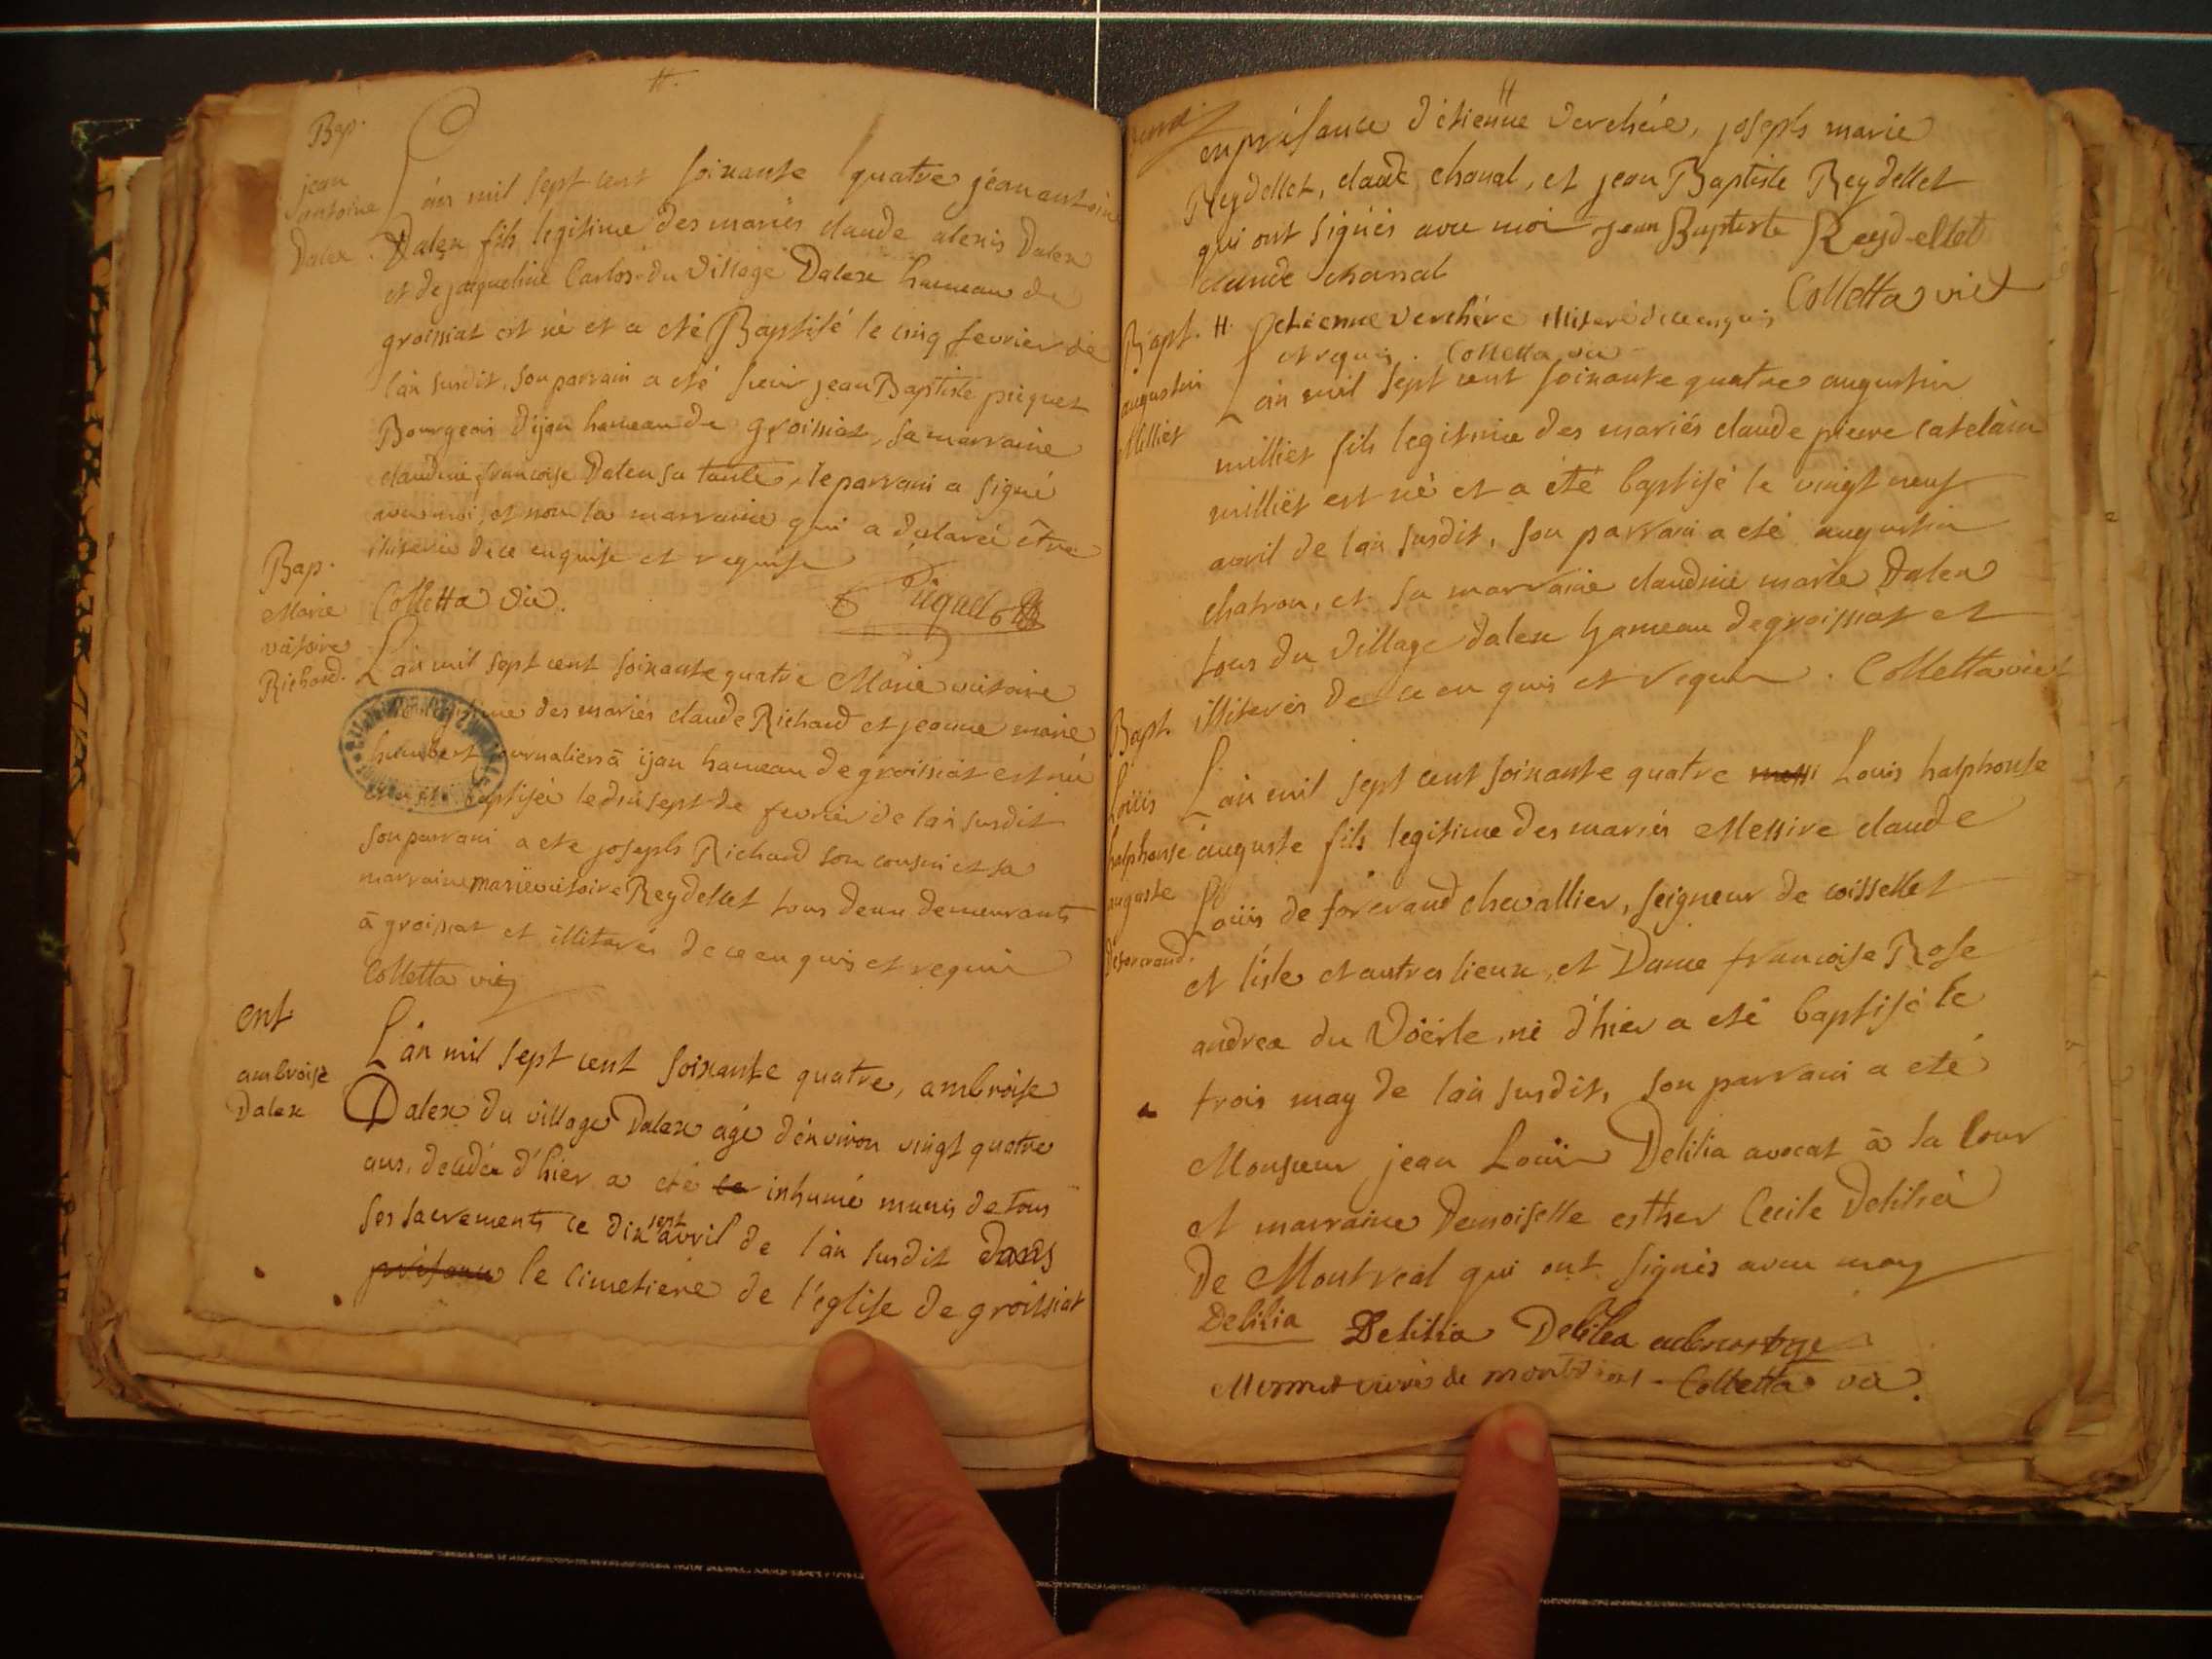 Bap.
jean
antoine
Dalex.
L'an mil sept cent soixante quatre jean antoine
Dalex fils legitime des mariés claude alexis Dalex
et de jacqueline Carlos du village Dalex hameau de
groissiat est né et a eté Baptisé le cinq fevrier de
l'an susdit, son parrain a eté sieur jean Baptiste piequet
Bourgeois d'ijan hameau de groissiat, sa marraine
claudine francoise Dalex sa tante, le parrain a signé
avec moi, et non la marraine qui a declaré être
illiterée de ce enquise et requise
Colletta vic. Piquet
Bap.
Marie
victoire
Richard.
L'an mil sept cent soixante quatre Marie victoire
des mariés claude Richard et jeanne marie
humbert journaliers à ijan hameau de groissiat est née
et a eté baptisée le dix sept de fevrier de l'an susdit
son parrain a ete joseph Richard son cousin et sa
marraine marie victoire Reydellet tous deux demeurants
à groissiat et illiterés de ce en quis et requis
Colletta vic
ent
ambroise
Dalex
L'an mil sept cent soixante quatre, ambroise
Dalex du village Dalex agé d'environ vingt quatre
ans, decedé d'hier a eté ce inhumé munis de tous
ses sacrements ce dix sept avril de l'an susdit dans
présance le cimetiere de l'église de groissiat
en présance d'étienne verchére, joseph marie
Reydellet, claude chanal, et jean Baptiste Reydellet
qui ont signés avec moi jean Baptiste Reydellet
claude chanal
Colletta vict
H. etienne verchére illiteré de ce enquis
et requis. Colletta vic
Bapt.
augustin
Milliet
L'an mil sept cent soixante quatre augustin
milliet fils legitime des mariés claude pierre catelain
milliet est né et a été baptisé le vingt neuf
avril de l'an susdit, son parrain a eté augustin
chatron, et sa marraine claudine marie Dalex
tous du village dalex hameau de groissiat et
illiterés de ce en quis et requis. Colletta vict
Bapt.
Louis
halphonse
auguste
deforcrand.
L'an mil sept cent soixante quatre Louis halphonse
auguste fils legitime des mariés Messire claude
Louis de forcrand chevallier, seigneur de coisselet
et lisle et autres lieux, et Dame francoise Rose
andrea du Voërle, né d'hier a eté baptisé le
trois may de l'an susdit, son parrain a eté
Monsieur jean Louis Delilia avocat à la Cour
et marraine Demoiselle esther Cecile Delilia
De Montreal qui ont signés avec moy
Delilia Delilia Delilia
Mermet vicaire de montreal. Colletta vic.